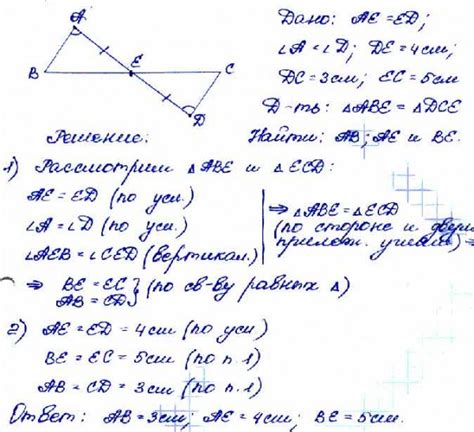 A
B
E
C
D
Дано: AE = ED;
∠A = ∠D; DE = 4см;
DC = 3см; EC = 5см
Д-ть: △ABE = △DCE
Найти: AB; AE и BE.
Решение:
1) Рассмотрим △ABE и △ECD:
AE = ED (по усл.)
∠A = ∠D (по усл.)
∠AEB = ∠CED (вертикал.)
⇒ △ABE = △ECD
(по стороне и двум
прилеж. углам) ⇒
⇒ BE = EC
AB = CD
} (по св-ву равных △)
2) AE = ED = 4см (по усл)
BE = EC = 5см (по п.1)
AB = CD = 3см (по п.1)
Ответ: AB = 3см; AE = 4см; BE = 5см.